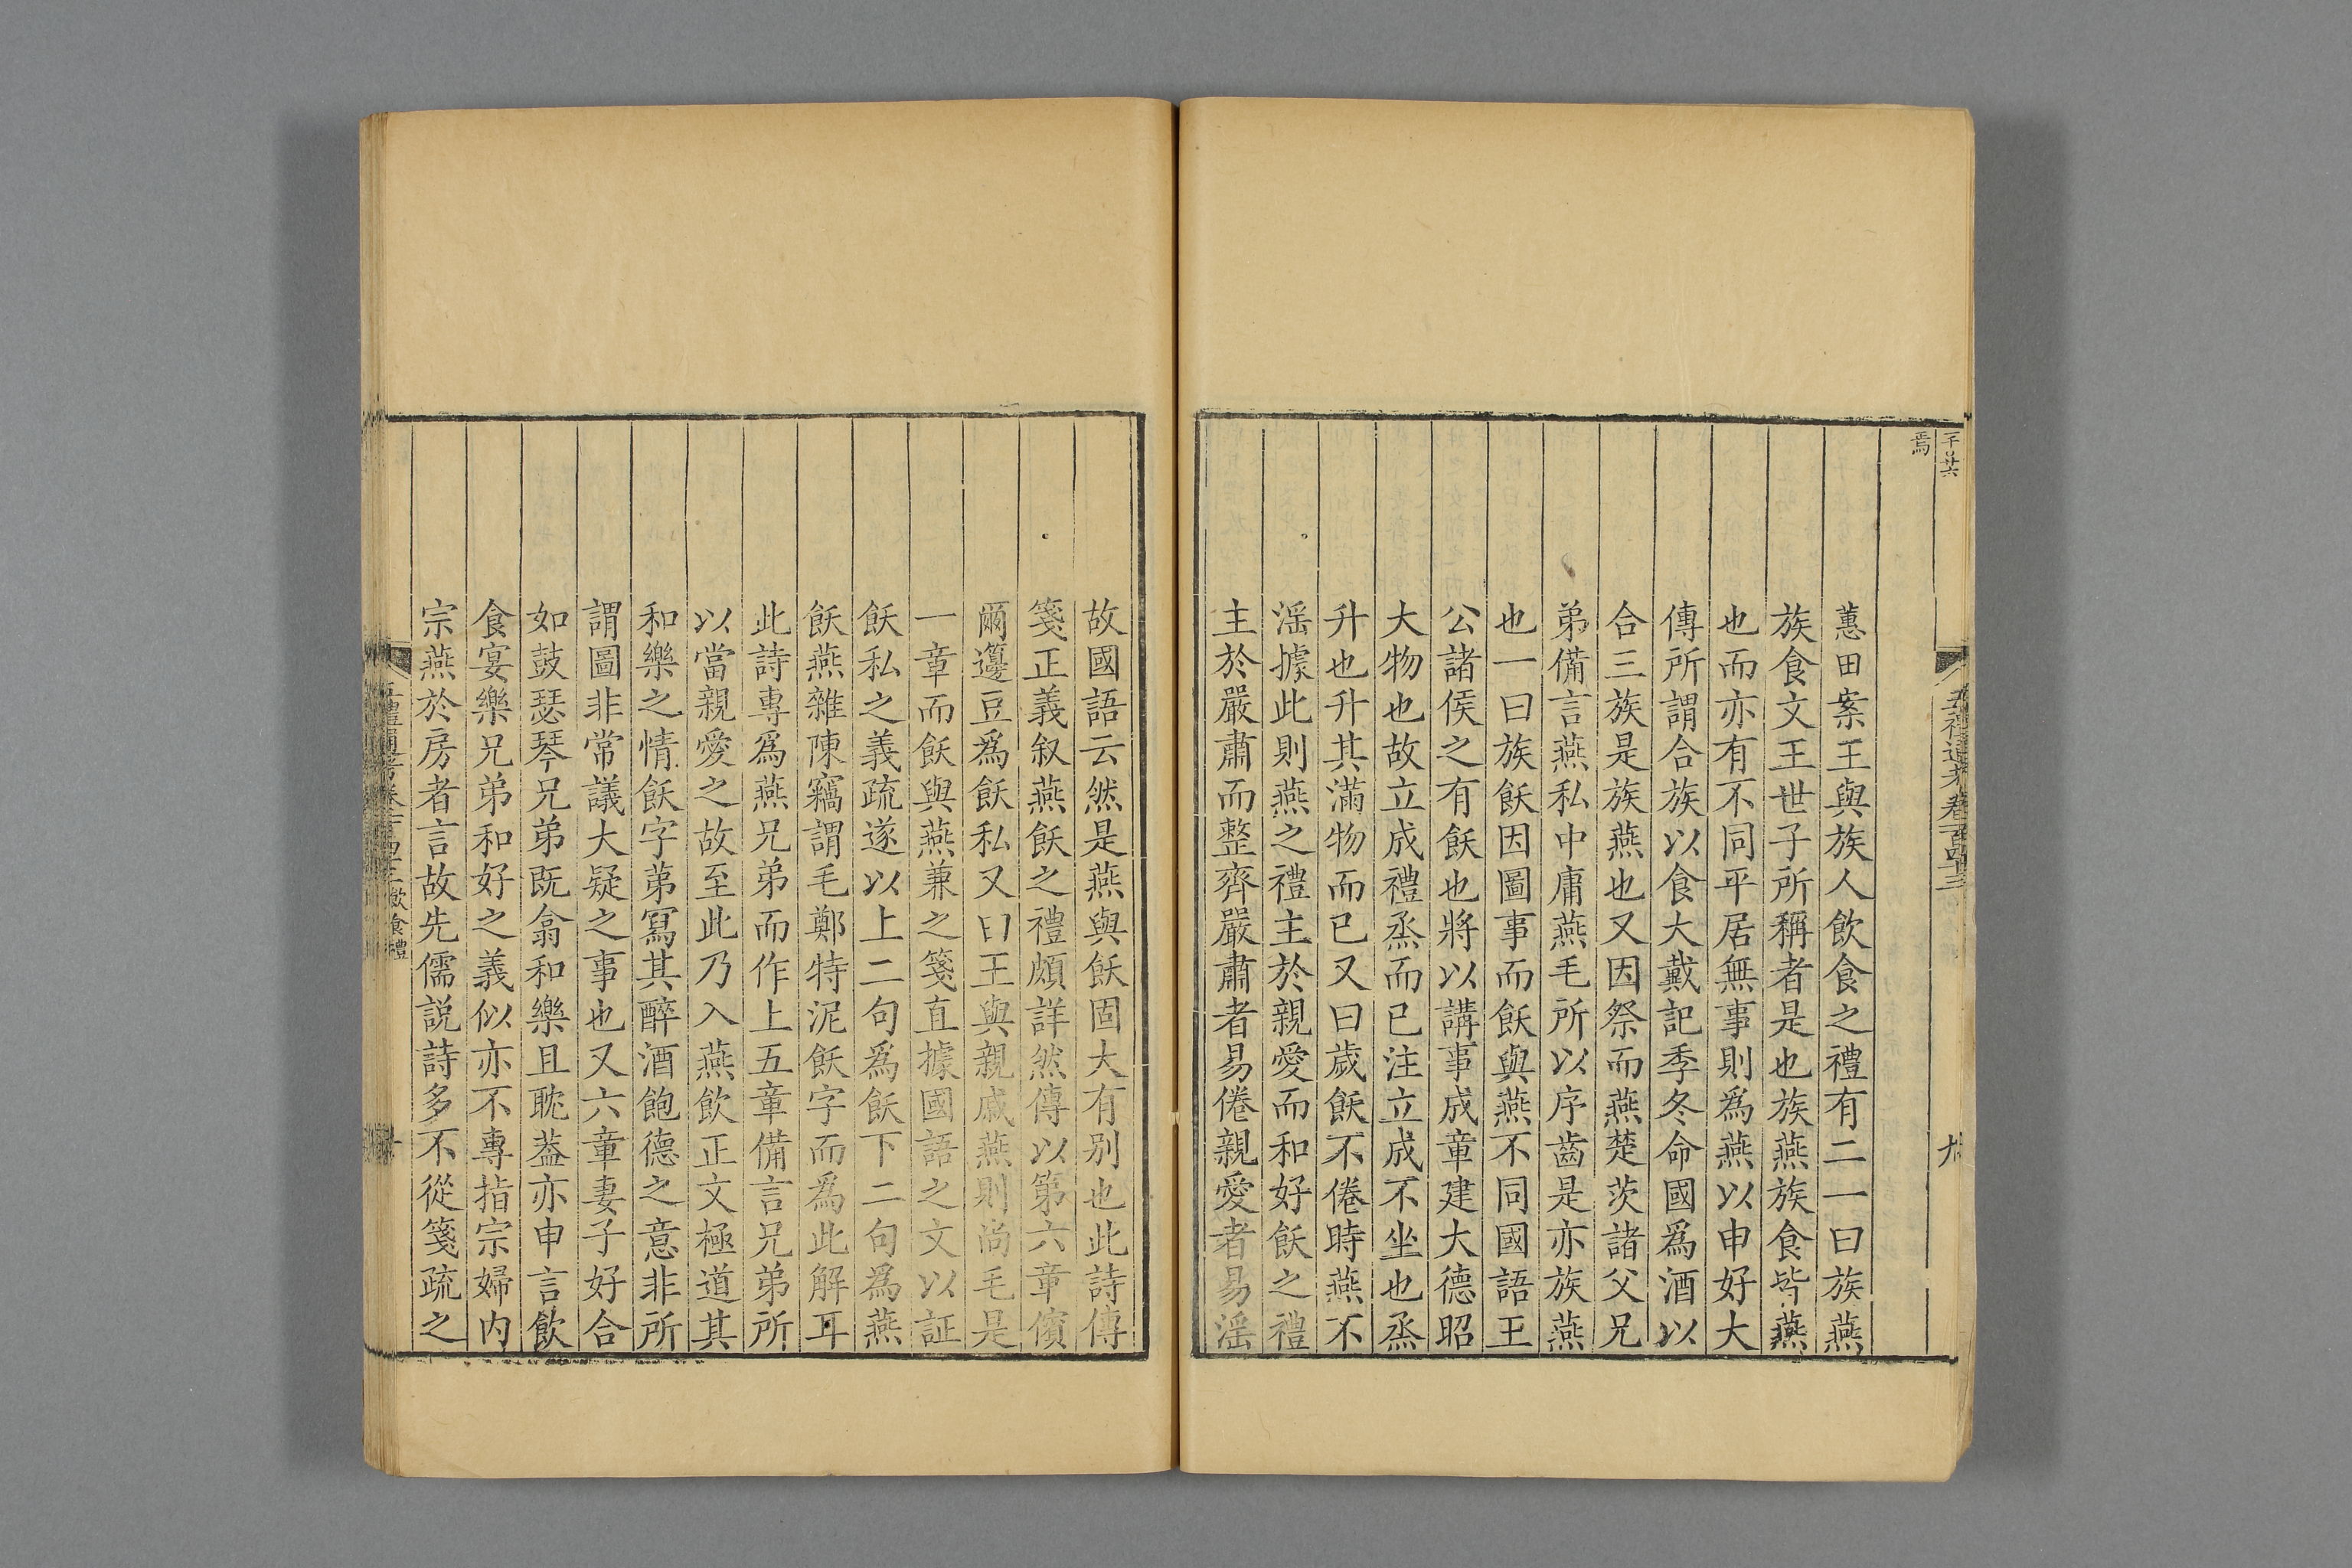 焉
蕙田案王與族人飲食之禮有二一曰族燕
族食文王世子所稱者是也族燕族食皆燕
也而亦有不同平居無事則為燕以申好大
傳所謂合族以食大戴記季冬命國為酒以
合三族是族燕也又因祭而燕楚茨諸父兄
弟備言燕私中庸燕毛所以序齒是亦族燕
也一曰族飫因圖事而飫與燕不同國語王
公諸侯之有飫也將以講事成章建大德昭
大物也故立成禮烝而已注立成不坐也烝
升也升其滿物而已又曰歲飫不倦時燕不
淫據此則燕之禮主於親愛而和好飫之禮
主於嚴肅而整齊嚴肅者易倦親愛者易淫
故國語云然是燕與飫固大有别也此詩傳
箋正義叙燕飫之禮頗詳然傳以第六章儐
爾籩豆爲飫私又曰王與親戚燕則尚毛是
一章而飫與燕兼之箋直據國語之文以証
飫私之義疏遂以上二句爲飫下二句爲燕
飫燕雜陳竊謂毛鄭特泥飫字而為此解耳
此詩專爲燕兄弟而作上五章備言兄弟所
以當親愛之故至此乃入燕飲正文極道其
和樂之情飫字第寫其醉酒飽德之意非所
謂圖非常議大疑之事也又六章妻子好合
如鼓瑟琴兄弟既翕和樂且耽葢亦申言飲
食宴樂兄弟和好之義似亦不專指宗婦内
宗燕於房者言故先儒説詩多不從箋疏之
五禮通考卷一百四十三 飲食禮